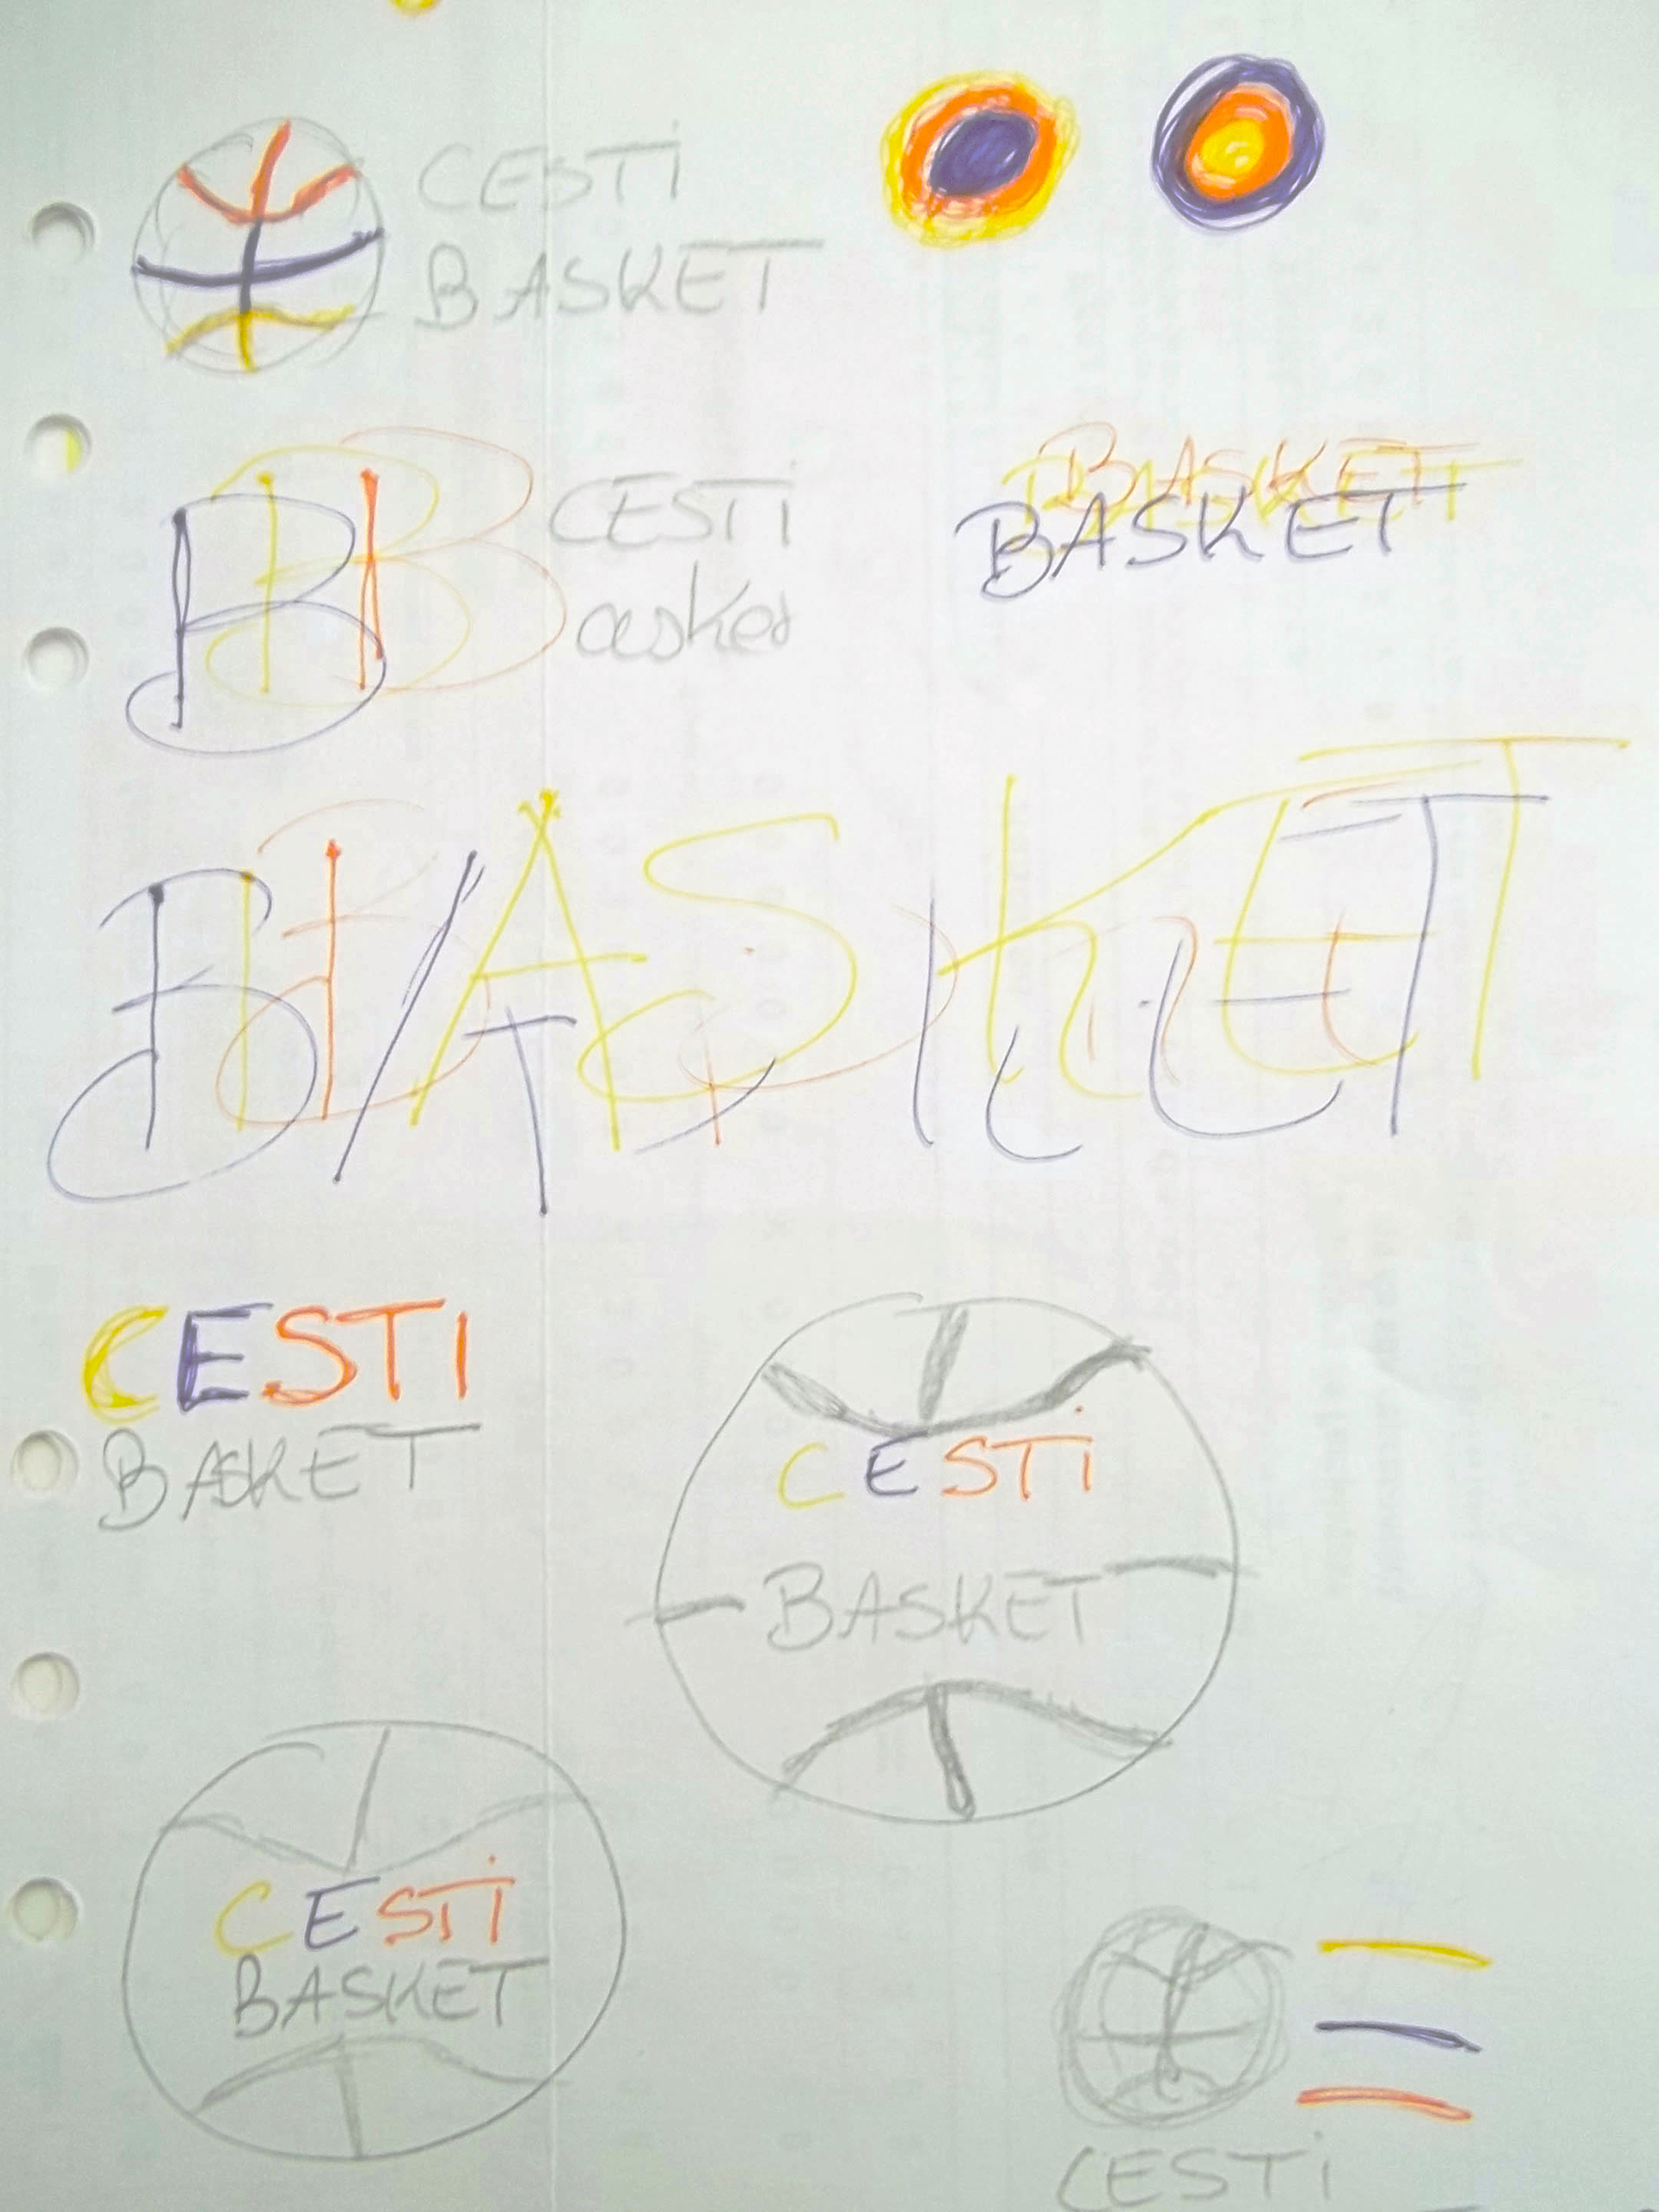 CESTi
BASKET
B CESTi
asket
BASKET
BASKET
BASKET
CESTI
BASKET
CESTi
BASKET
CESTi
BASKET
CESTi